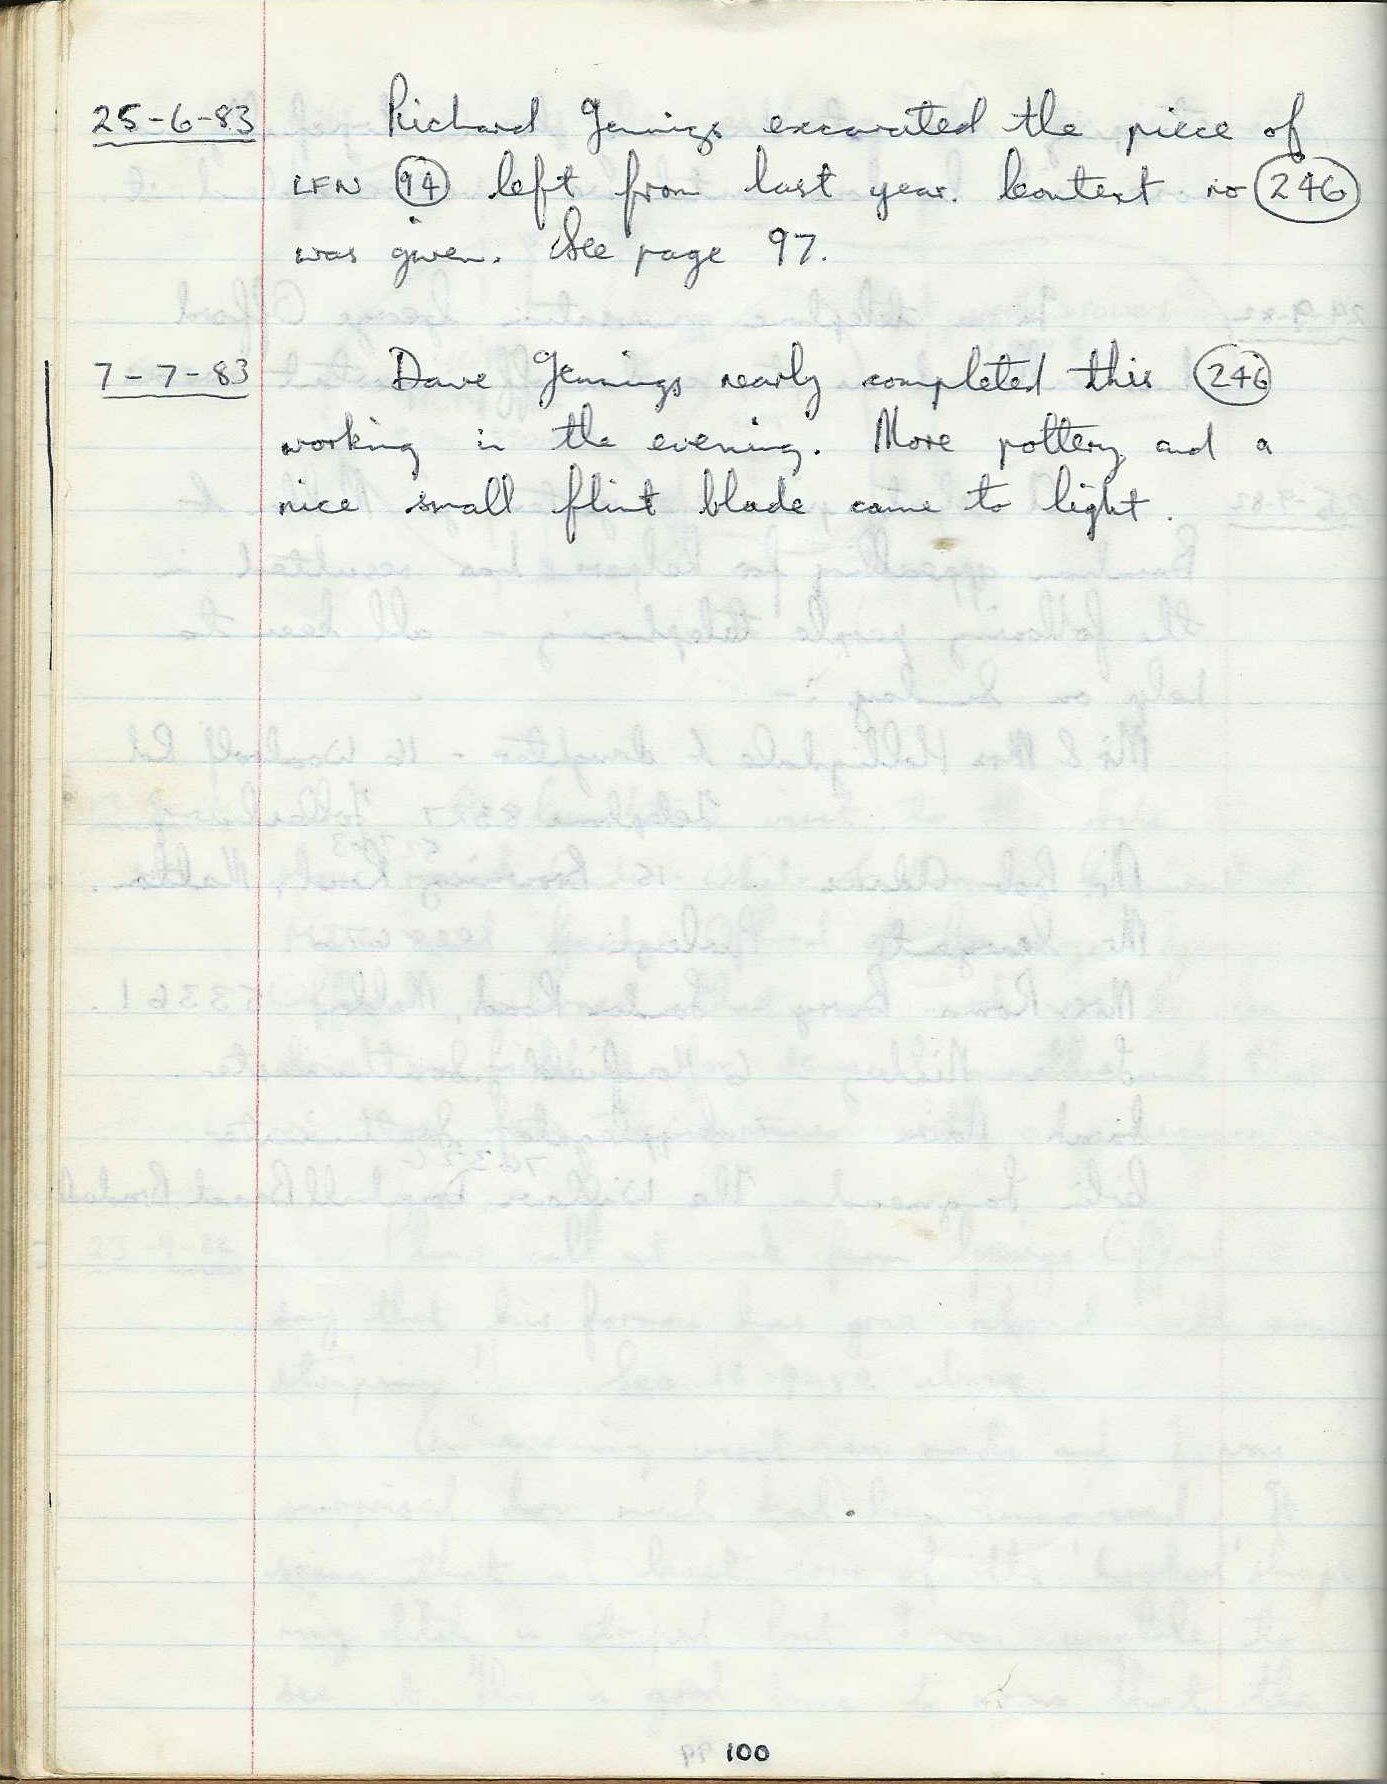 25-6-83 Richard Jennings excavated the piece of
LFN 94 left from last year. Context no 246
was given. See page 97.
7-7-83 Dave Jennings nearly completed this 246
working in the evening. More pottery and a
nice small flint blade came to light.
100